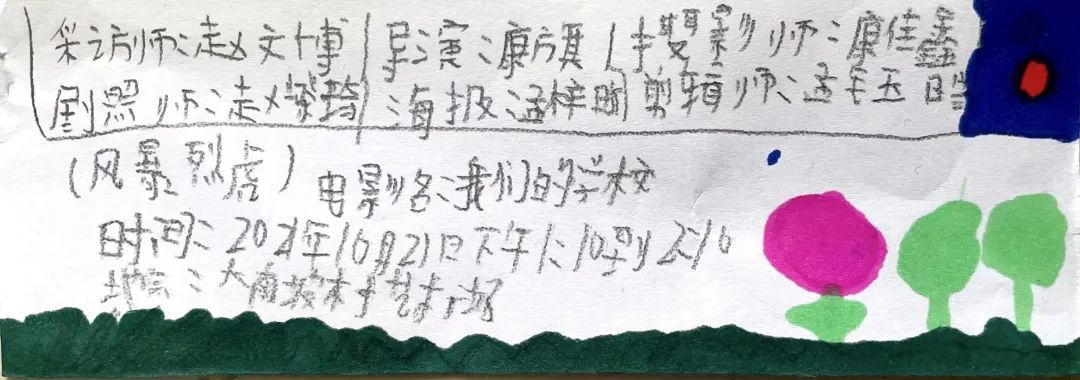 采访师：赵文博 导演：康旗 摄影师：康佳鑫
剧照师：赵紫琦 海报：孟梓 剪辑师：孟玉
（风暴烈虎） 电影名：我们的学校
时间：2021年10月21日下午1：10到2：10
地点：大南坡村艺术场